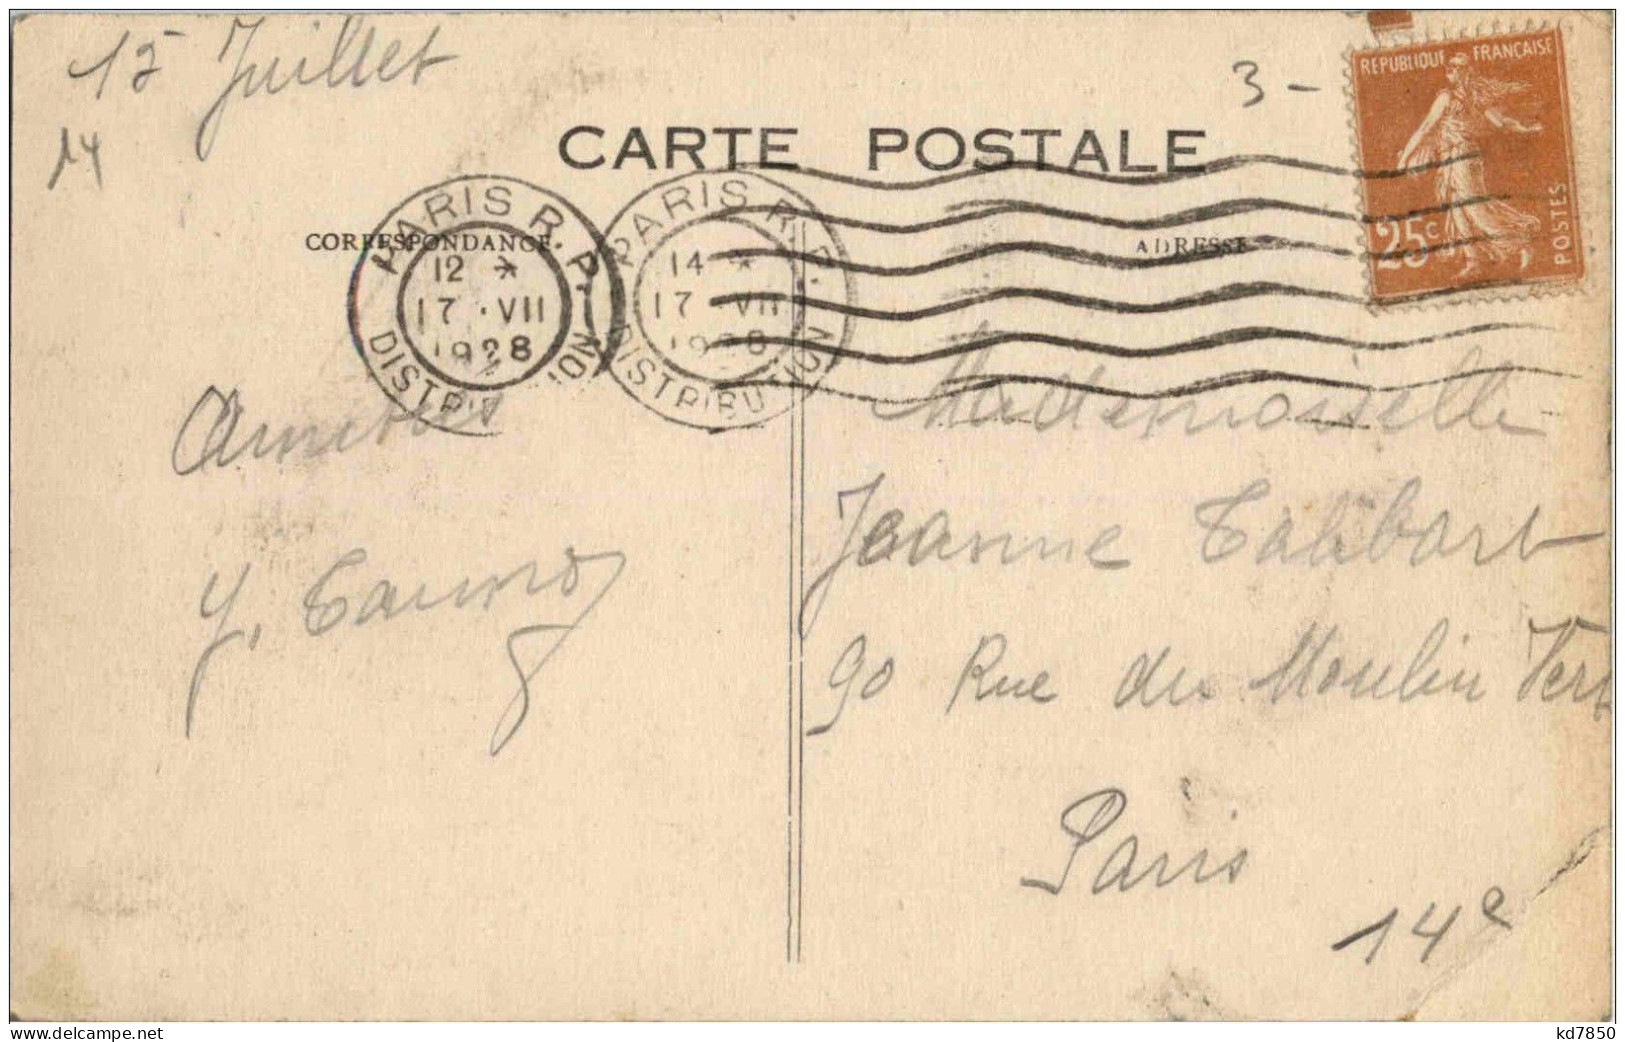 15 Juillet
14
3 -
REPUBLIQUE FRANÇAISE
25c
POSTES
CARTE POSTALE
CORRESPONDANCE
ADRESSE
PARIS R.P.
12 *
17 · VII
1928
DISTRIBUTION
PARIS R.P.
14 *
17 · VII
1928
DISTRIBUTION
Amitiés
Y.
Mademoiselle
Jeanne Talibart
90 Rue du Moulin Vert
Paris
14e
www.delcampe.net
kd7850